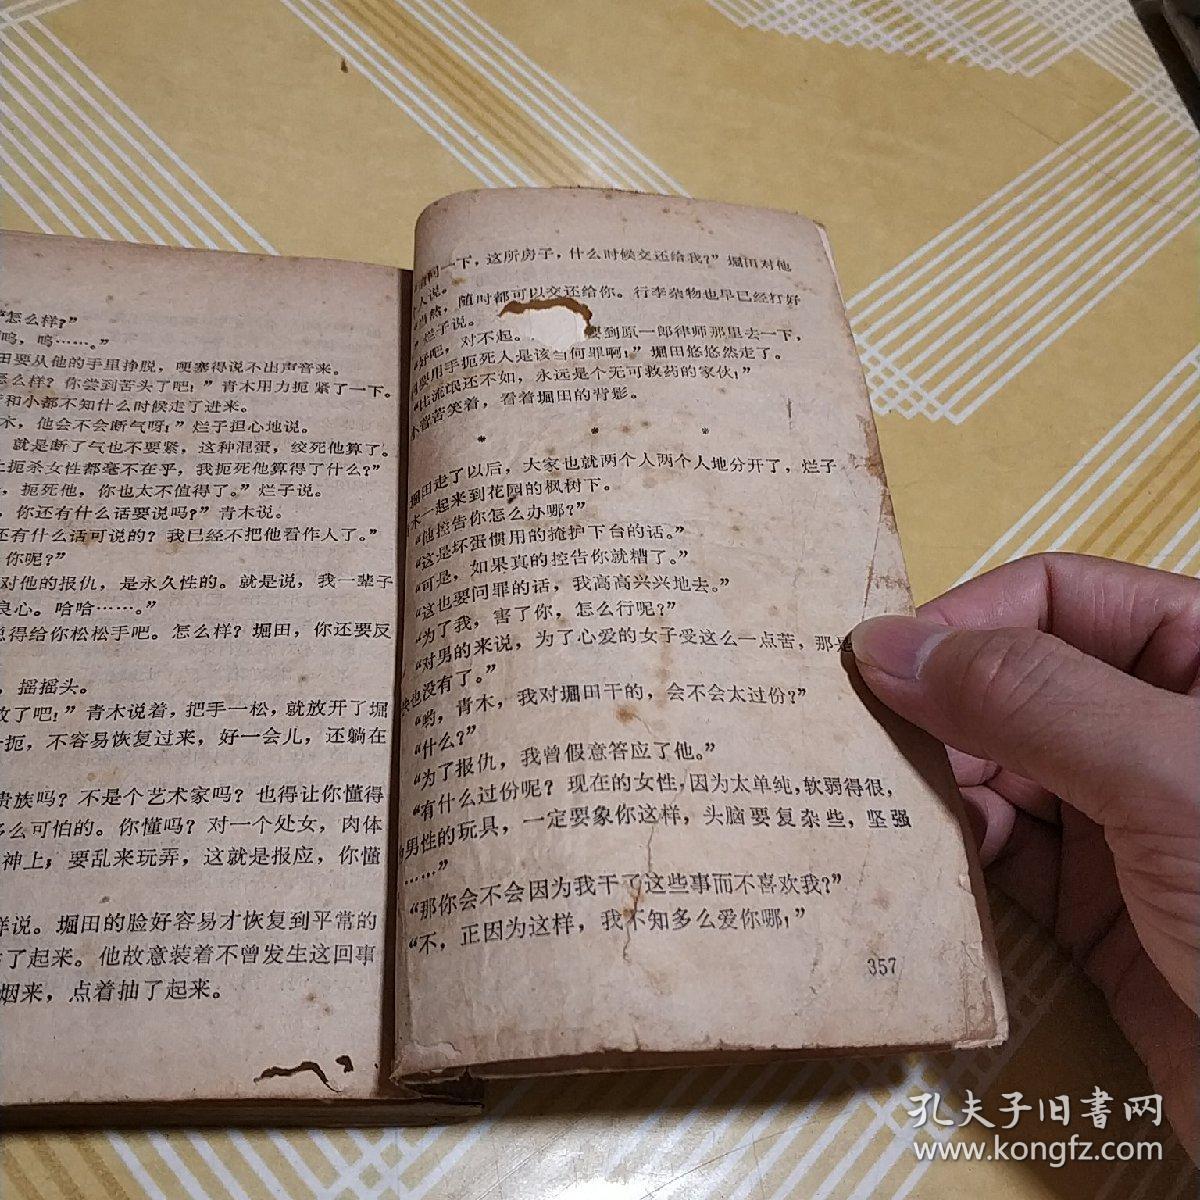 “怎么样?”
呜，呜……。”
田要从他的手里挣脱，哽塞得说不出声音来。
怎么样? 你尝到苦头了吧!” 青木用力扼紧了一下。
和小都不知什么时候走了进来。
木，他会不会断气呀!” 烂子担心地说。
就是断了气也不要紧，这种混蛋，绞死他算了。
扼杀女性都毫不在乎，我扼死他算得了什么?”
，扼死他，你也太不值得了。” 烂子说。
，你还有什么话要说吗?” 青木说。
还有什么话可说的? 我已经不把他看作人了。”
你呢?”
对他的报仇，是永久性的。就是说，我一辈子
良心。哈哈……。”
得给你松松手吧。怎么样? 堀田，你还要反
，摇摇头。
放了吧!” 青木说着，把手一松，就放开了堀
扼，不容易恢复过来，好一会儿，还躺在
贵族吗? 不是个艺术家吗? 也得让你懂得
多么可怕的。你懂吗? 对一个处女，肉体
神上，要乱来玩弄，这就是报应，你懂
样说。堀田的脸好容易才恢复到平常的
了起来。他故意装着不曾发生这回事
烟来，点着抽了起来。
问一下，这所房子，什么时候交还给我?” 堀田对他
人说。
当然，随时都可以交还给你。行李杂物也早已经打好
烂子说。
好吧，对不起。 要到原一郎律师那里去一下，
用手扼死人是该当何罪啊!” 堀田悠悠然走了。
比流氓还不如，永远是个无可救药的家伙!”
苦笑着，看着堀田的背影。
* * *
堀田走了以后，大家也就两个人两个人地分开了，烂子
木一起来到花园的枫树下。
“他控告你怎么办哪?”
“这是坏蛋惯用的掩护下台的话。”
“可是，如果真的控告你就糟了。”
“这也要问罪的话，我高高兴兴地去。”
“为了我，害了你，怎么行呢?”
“对男的来说，为了心爱的女子受这么一点苦，那是
也没有了。”
“哟，青木，我对堀田干的，会不会太过份?”
“什么?”
“为了报仇，我曾假意答应了他。”
“有什么过份呢? 现在的女性，因为太单纯，软弱得很，
男性的玩具，一定要象你这样，头脑要复杂些，坚强
……”
“那你会不会因为我干了这些事而不喜欢我?”
“不，正因为这样，我不知多么爱你哪!”
357
孔夫子旧書网
www.kongfz.com